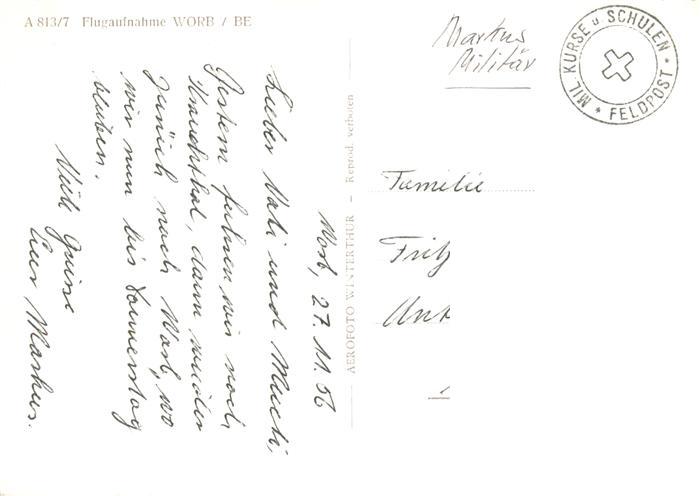 A 813/7 Flugaufnahme WORB / BE
Worb, 27. 11. 56
Lieber Vati und Mutti,
Gestern fuhren wir nach
Krauchthal, dann wieder
zurück nach Worb, wo
wir nun bis Donnerstag
bleiben.
Viele Grüsse
Euer Markus.
AEROFOTO WINTERTHUR – Reprod. verboten
Markus
Militär
MIL. KURSE u SCHULEN * FELDPOST *
Familie
Fritz